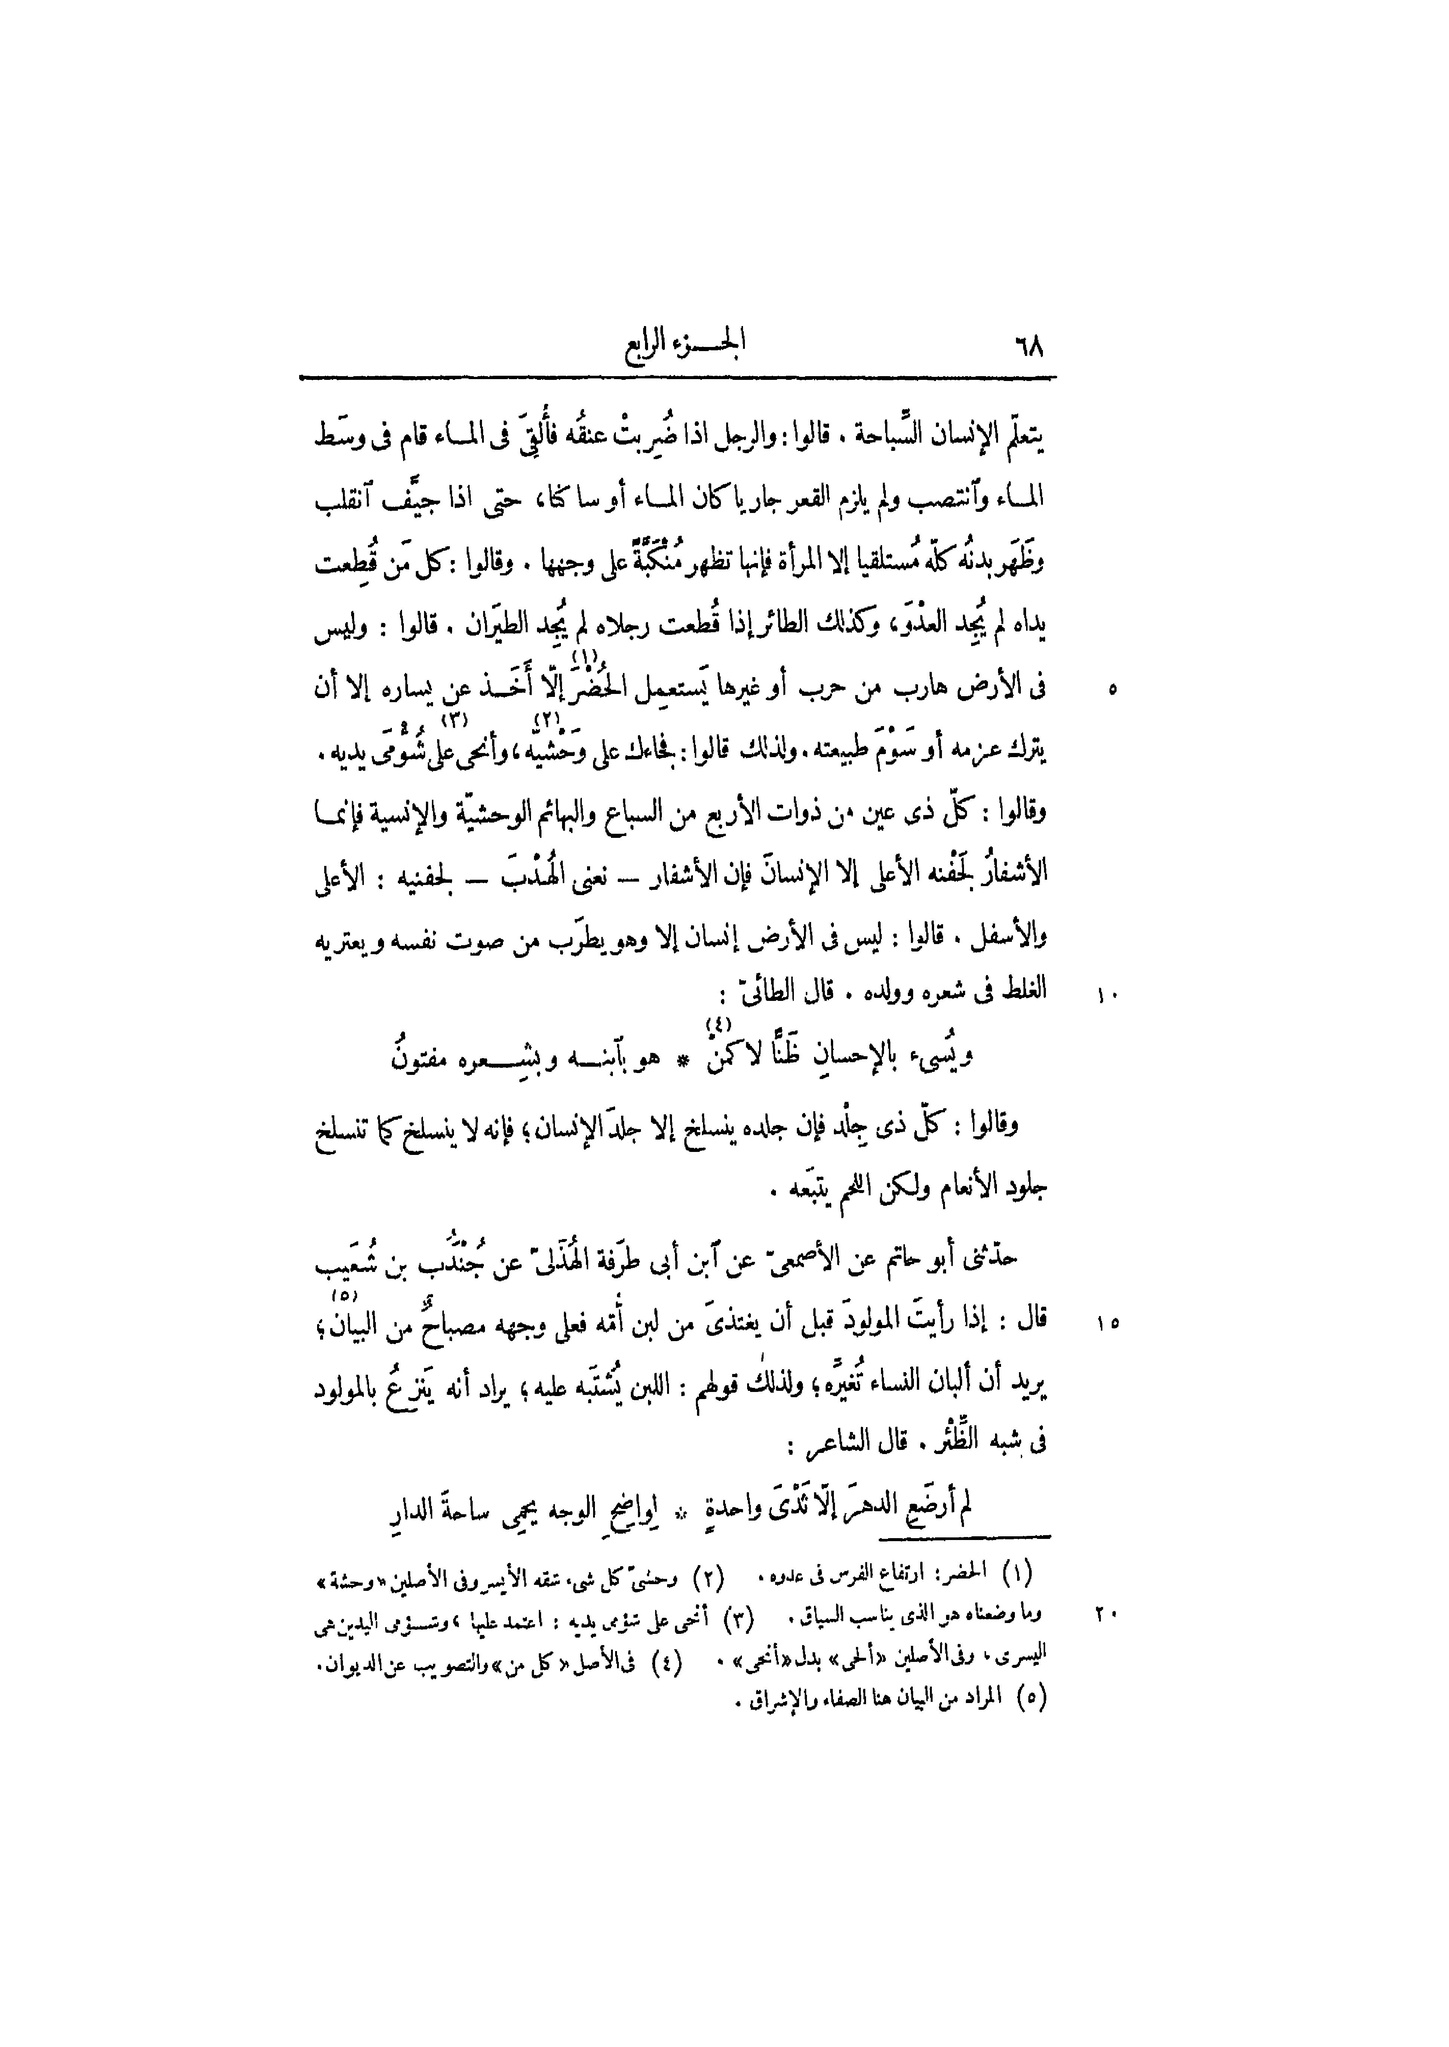 ٦٨ الجزء الرابع
يتعلّم الإنسان السِّباحة . قالوا : والرجل اذا ضُرِبتْ عنقُه فأُلقِىَ فى الماء قام فى وسَط
الماء وٱنتصب ولم يلزم القعر جاريا كان الماء أو ساكنا، حتى اذا جيَّف ٱنقلب
وظَهَر بدنُه كلّه مُستلقيا إلا المرأة فإنها تظهر مُنْكَبَّةً على وجهها . وقالوا : كل مَن قُطِعت
يداه لم يُجِد العدْوَ، وكذلك الطائر إذا قُطعت رجلاه لم يُجِد الطيَران . قالوا : وليس
٥ فى الأرض هارب من حرب أو غيرها يَستعمِل الحُضْرَ(١) إلّا أَخَذ عن يساره إلا أن
يترك عزمه أو سَوْمَ طبيعته . ولذلك قالوا : فجاءك على وَحْشيّه(٢)، وأنحى على(٣) شُؤْمَى يديه .
وقالوا : كلّ ذى عين من ذوات الأربع من السباع والبهائم الوحشيّة والإنسية فإنما
الأشفارُ لجَفْنه الأعلى إلا الإنسانَ فإن الأشفار — نعنى الهُدْبَ — لجفنيه : الأعلى
والأسفل . قالوا : ليس فى الأرض إنسان إلا وهو يطرَب من صوت نفسه ويعتريه
١٠ الغلط فى شعره وولده . قال الطائىّ :
ويُسىء بالإحسانِ ظَنًّا لا كمَنْ(٤) * هو بٱبنه وبشِعره مفتونُ
وقالوا : كلّ ذى جِلْد فإن جلده ينسلخ إلا جلدَ الإنسان؛ فإنه لا ينسلخ كما تنسلخ
جلود الأنعام ولكن اللحم يتبَعه .
حدّثنى أبو حاتم عن الأصمعىّ عن ٱبن أبى طرَفة الهُذَلىّ عن جُنْدَُب بن شُعَيب
١٥ قال : إذا رأيتَ المولودَ قبل أن يغتذىَ من لبن أُمّه فعلى وجهه مصباحٌ من البيان(٥)؛
يريد أن ألبان النساء تُغيِّره؛ ولذلك قولهم : اللبن يُشْتَبَه عليه؛ يراد أنه يَنزِعُ بالمولود
فى شبه الظِّئْر . قال الشاعر :
لم أرضَعِ الدهرَ إلّا ثَدْىَ واحدةٍ * لِواضِحِ الوجه يحمِى ساحةَ الدارِ
(١) الحضر : ارتفاع الفرس فى عدوه . (٢) وحشىّ كل شىء شقه الأيسر وفى الأصلين «وحشة»
٢٠ وما وضعناه هو الذى يناسب السياق . (٣) أنحى على شؤمى يديه : اعتمد عليها ، وشؤمى اليدين هى
اليسرى، وفى الأصلين «ألحى» بدل «أنحى» . (٤) فى الأصل «كل من» والتصويب عن الديوان .
(٥) المراد من البيان هنا الصفاء والإشراق .